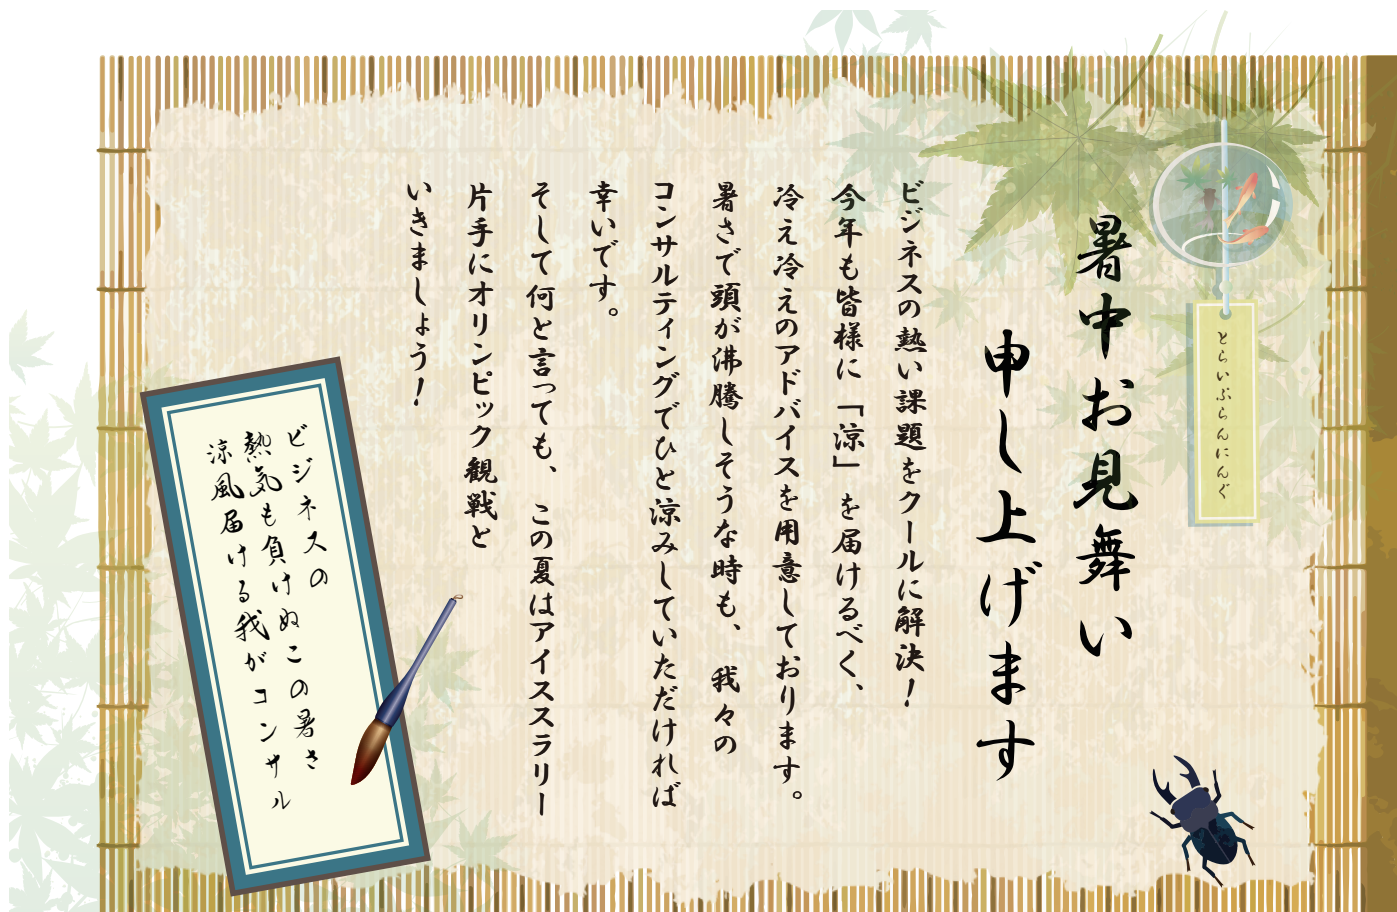 とらいぶらんにんぐ
暑中お見舞い
申し上げます
ビジネスの熱い課題をクールに解決！
今年も皆様に「涼」を届けるべく、
冷え冷えのアドバイスを用意しております。
暑さで頭が沸騰しそうな時も、我々の
コンサルティングでひと涼みしていただければ
幸いです。
そして何と言っても、この夏はアイススラリー
片手にオリンピック観戦と
いきましょう！
ビジネスの
熱気も負けぬこの暑さ
涼風届ける我がコンサル